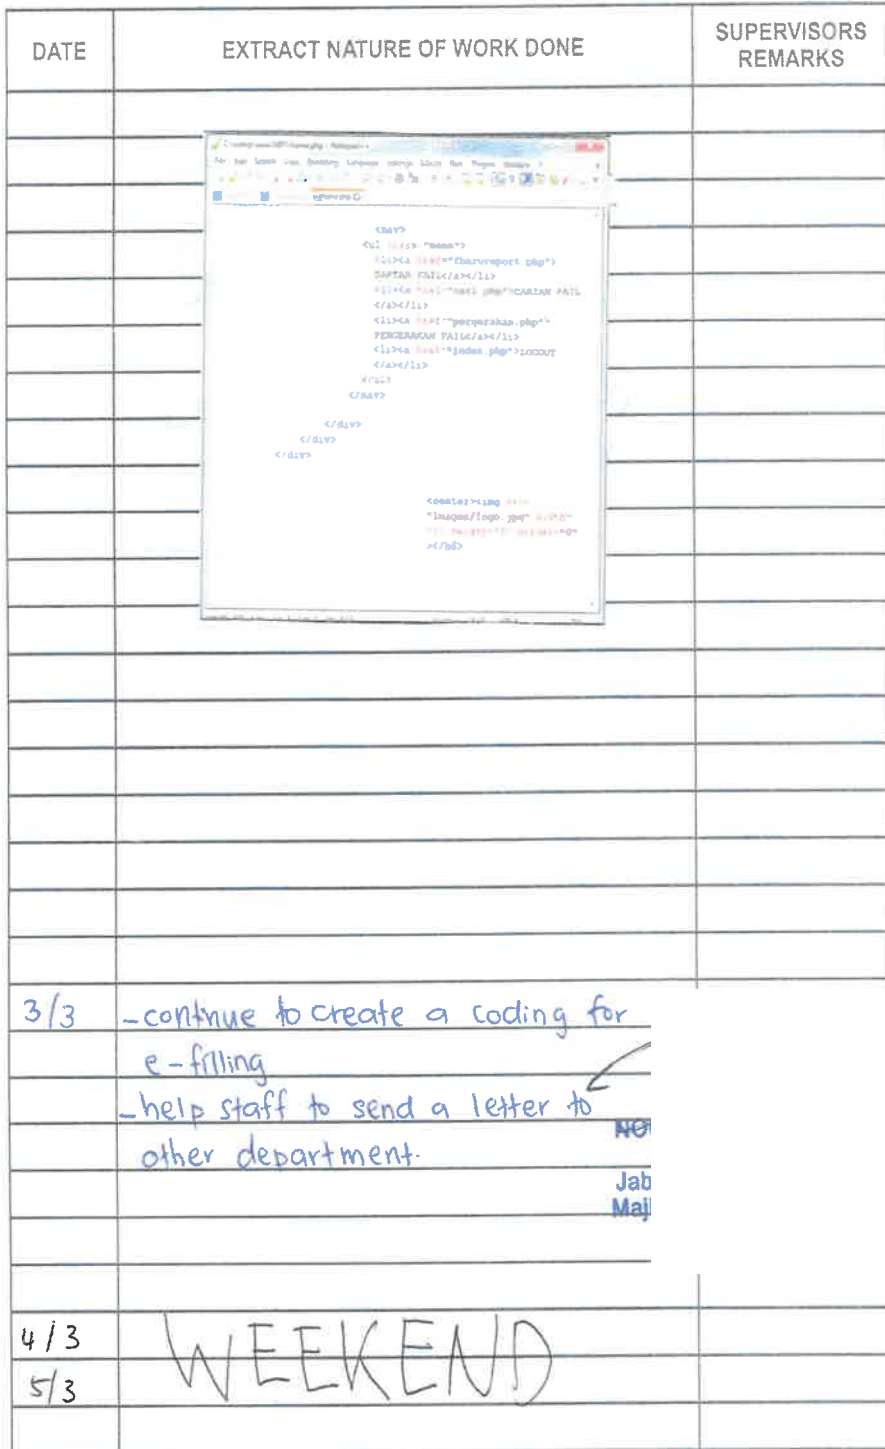 DATE
EXTRACT NATURE OF WORK DONE
SUPERVISORS
REMARKS
<nav>
<ul "menu">
<li><a "fbarureport.php">
DAFTAR FAIL</a></li>
CARIAN FAIL
</a></li>
<li><a "pergerakan.php">
PERGERAKAN FAIL</a></li>
<li><a "index.php">LOGOUT
</a></li>
</ul>
</nav>
</div>
</div>
</div>
<center><img
"images/logo.jpg"
></h6>
3/3 -continue to create a coding for
e-filling
-help staff to send a letter to
other department.
Jab
Maj
4/3 WEEKEND
5/3